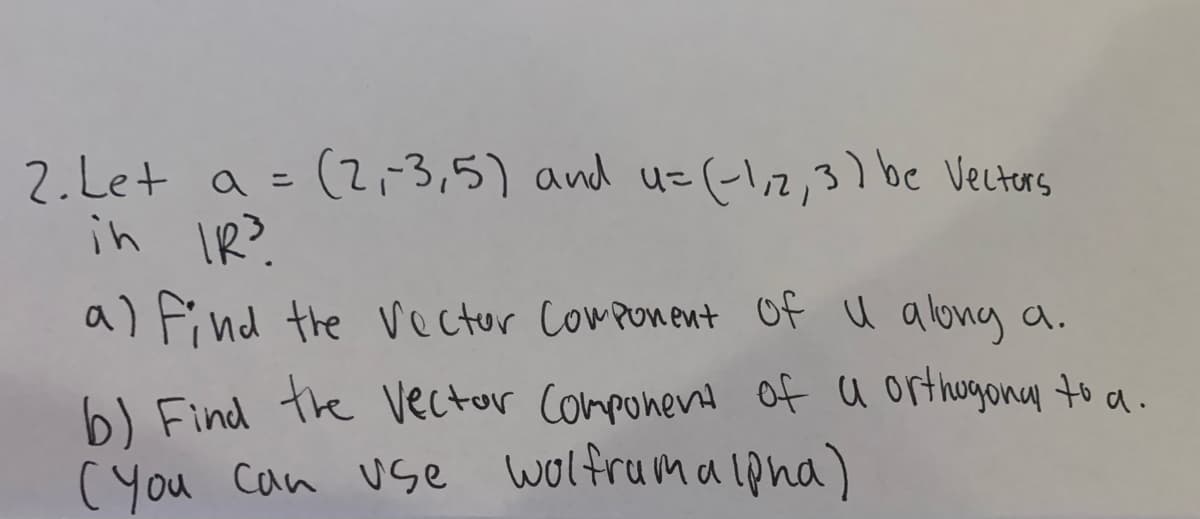 2. Let a = (2,-3,5) and u=(-1,2,3) be vectors
in IR³.
a) Find the vector component of u along a.
b) Find the vector component of u orthogonal to a.
(You can use wolframalpha)